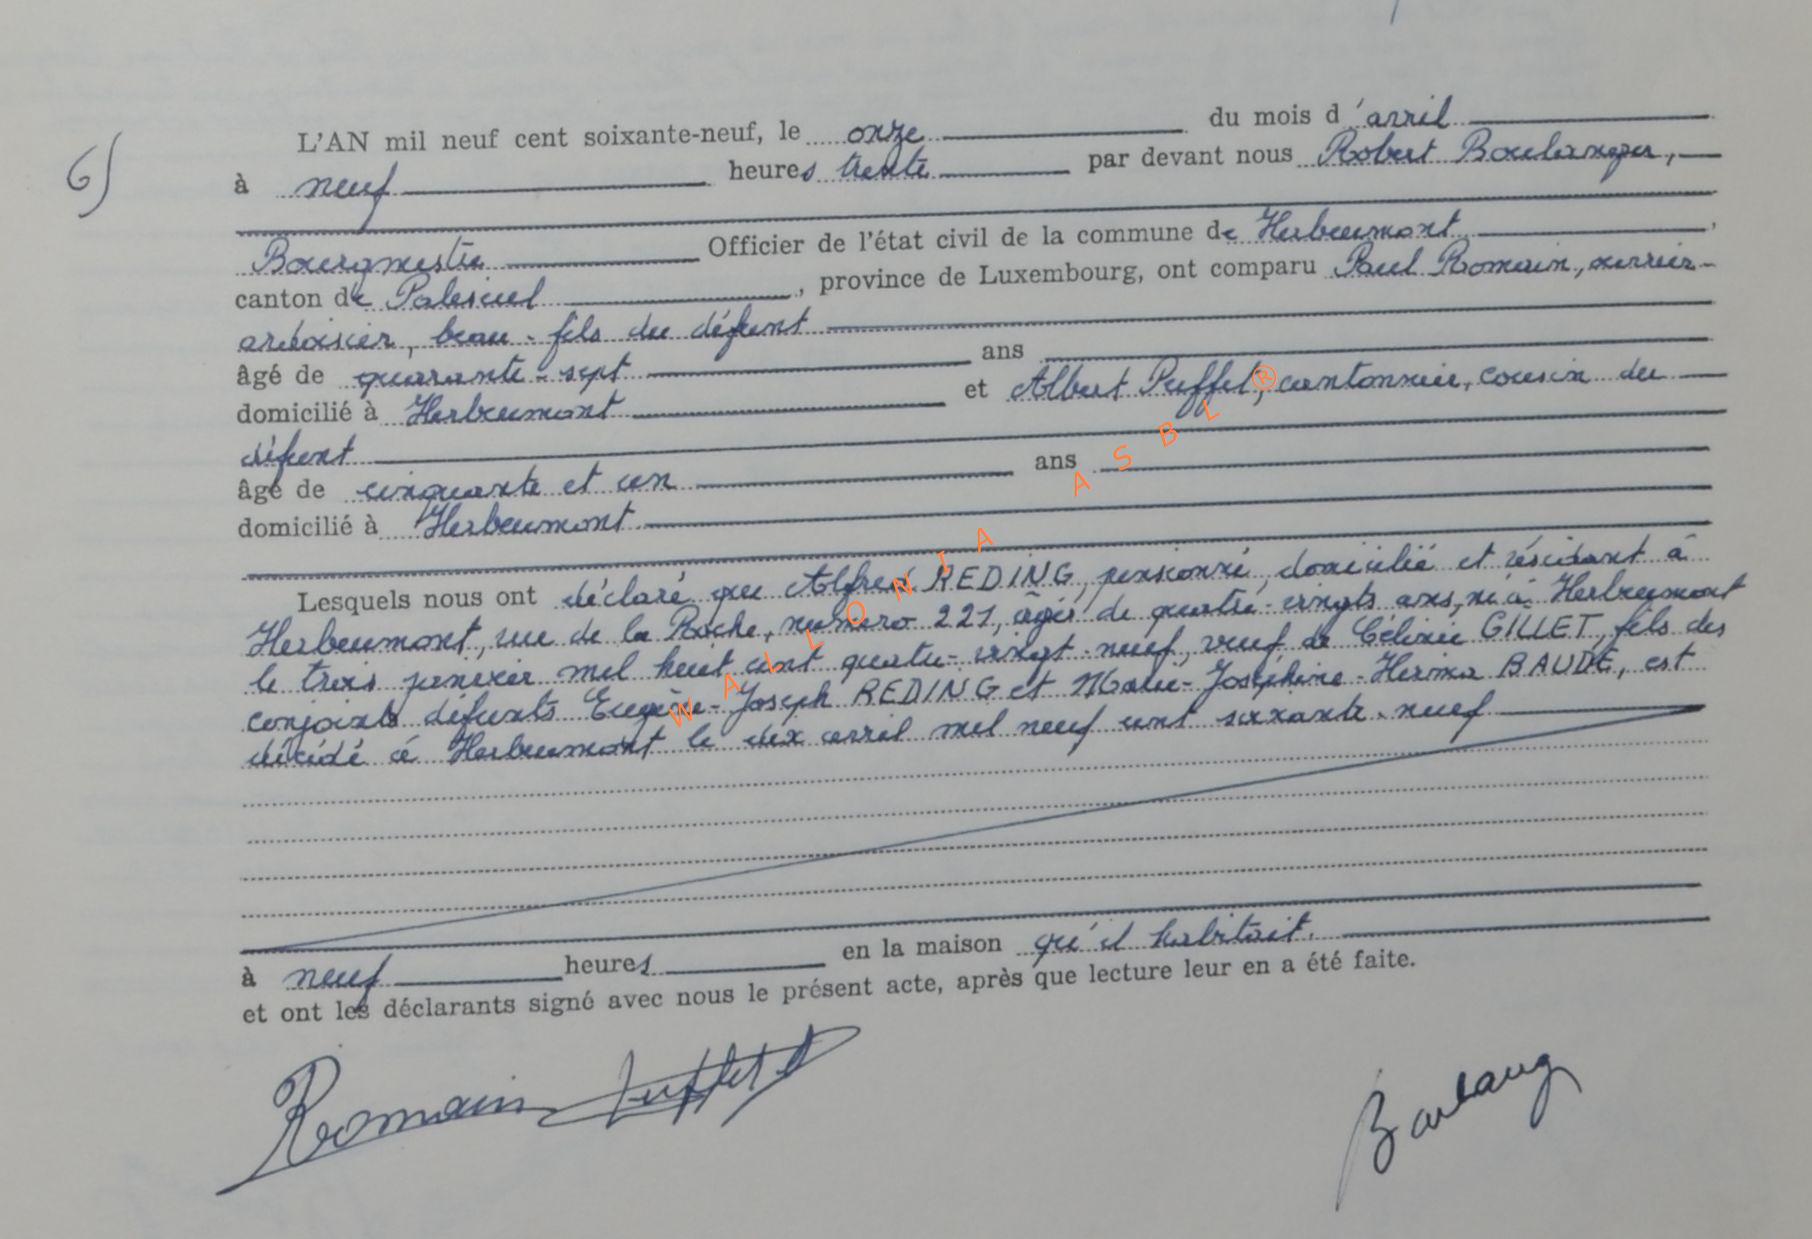 6)
L'AN mil neuf cent soixante-neuf, le onze du mois d'avril
à neuf heures trente par devant nous Robert Boulanger,
Bourgmestre Officier de l'état civil de la commune de Herbeumont,
canton de Paliseul, province de Luxembourg, ont comparu Paul Romain, ouvrier-
ardoisier, beau-fils du défunt
âgé de quarante-sept ans
domicilié à Herbeumont et Albert Puffet, cantonnier, cousin du
défunt
âgé de cinquante et un ans
domicilié à Herbeumont
Lesquels nous ont déclaré que Alfred REDING, pensionné, domicilié et résidant à
Herbeumont, rue de la Roche, numéro 221, âgé de quatre-vingts ans, né à Herbeumont
le trois janvier mil huit cent quatre-vingt-neuf, veuf de Célinie GILLET, fils des
conjoints défunts Eugène-Joseph REDING et Marie-Joséphine-Herma BAUDE, est
décédé à Herbeumont le dix avril mil neuf cent soixante-neuf
à neuf heures en la maison qu'il habitait.
et ont les déclarants signé avec nous le présent acte, après que lecture leur en a été faite.
Romain Puffet Boulang
WALLONIA ASBL ®